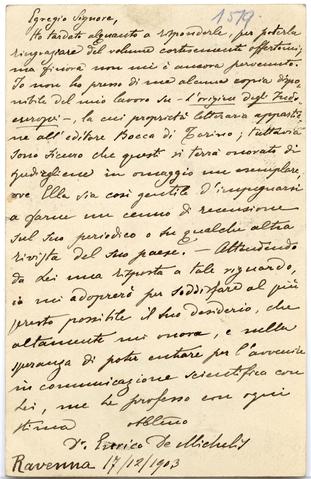 1519.
Egregio Signore,
Ho tardato alquanto a risponderle, per poterla
ringraziare del volume cortesemente offertomi;
ma finora non mi è ancora pervenuto.
Io non ho presso di me alcuna copia dispo-
nibile del mio lavoro su «L'origine degli Indo-
europei», la cui proprietà letteraria appartie-
ne all'editore Bocca di Torino; tuttavia
sono sicuro che questi si terrà onorato di
spedirgliene in omaggio un esemplare,
ove Ella sia così gentile d'impegnarsi
a farne un cenno di recensione
sul suo periodico o su qualche altra
rivista del suo paese. — Attendendo
da Lei una risposta a tale riguardo,
io mi adoprerò per soddisfare al più
presto possibile il suo desiderio, che
altamente mi onora, e nella
speranza di poter entrare per l'avvenire
in comunicazione scientifica con
Lei, me Le professo con ogni
stima
obblmo
Dr. Enrico De Michelis
Ravenna 17/12/1903